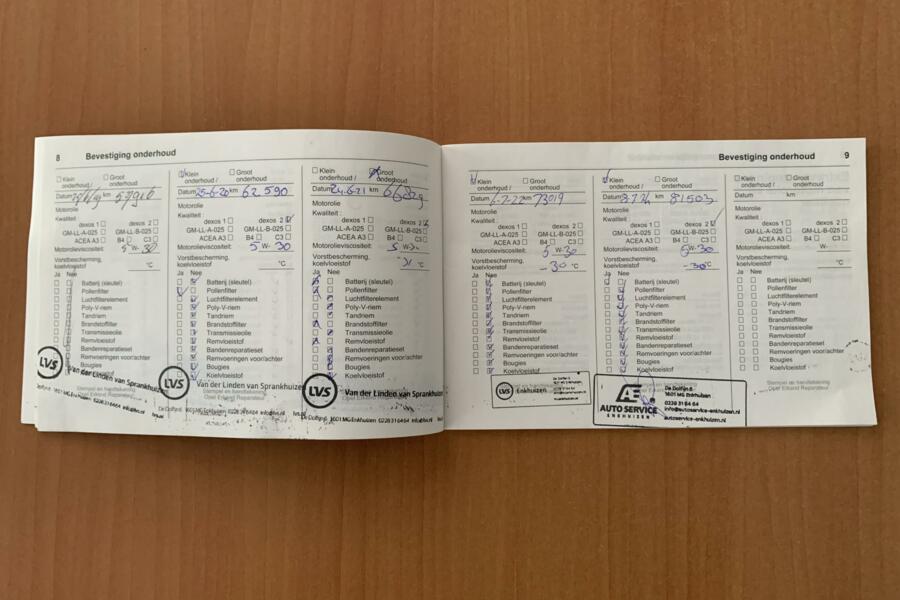 8 Bevestiging onderhoud
Klein onderhoud / Groot onderhoud
Datum km 57916
Motorolie
Kwaliteit :
dexos 1 dexos 2
GM-LL-A-025 GM-LL-B-025
ACEA A3 B4 C3
Motorolieviscositeit: 5 W- 30
Vorstbescherming, koelvloeistof °C
Ja Nee
Batterij (sleutel)
Pollenfilter
Luchtfilterelement
Poly-V-riem
Tandriem
Brandstoffilter
Transmissieolie
Remvloeistof
Bandenreparatieset
Remvoeringen voor/achter
Bougies
Koelvloeistof
LVS Van der Linden van Sprankhuizen
Klein onderhoud / Groot onderhoud
Datum 25-6-20 km 62590
Motorolie
Kwaliteit :
dexos 1 dexos 2
GM-LL-A-025 GM-LL-B-025
ACEA A3 B4 C3
Motorolieviscositeit: 5 W- 30
Vorstbescherming, koelvloeistof °C
Ja Nee
Batterij (sleutel)
Pollenfilter
Luchtfilterelement
Poly-V-riem
Tandriem
Brandstoffilter
Transmissieolie
Remvloeistof
Bandenreparatieset
Remvoeringen voor/achter
Bougies
Koelvloeistof
LVS Van der Linden van Sprankhuizen
Stempel en handtekening
Opel Erkend Reparateur
Klein onderhoud / Groot onderhoud
Datum 24-6-21 km
Motorolie
Kwaliteit :
dexos 1 dexos 2
GM-LL-A-025 GM-LL-B-025
ACEA A3 B4 C3
Motorolieviscositeit: 5 W-30
Vorstbescherming, koelvloeistof °C
Ja Nee
Batterij (sleutel)
Pollenfilter
Luchtfilterelement
Poly-V-riem
Tandriem
Brandstoffilter
Transmissieolie
Remvloeistof
Bandenreparatieset
Remvoeringen voor/achter
Bougies
Koelvloeistof
LVS Van der Linden van Sprankhuizen
De Dolfijn 5 1601 MG Enkhuizen 0228 31 64 64
Bevestiging onderhoud 9
Klein onderhoud / Groot onderhoud
Datum 6-7-22 km 73019
Motorolie
Kwaliteit :
dexos 1 dexos 2
GM-LL-A-025 GM-LL-B-025
ACEA A3 B4 C3
Motorolieviscositeit: 5 W- 30
Vorstbescherming, koelvloeistof -30 °C
Ja Nee
Batterij (sleutel)
Pollenfilter
Luchtfilterelement
Poly-V-riem
Tandriem
Brandstoffilter
Transmissieolie
Remvloeistof
Bandenreparatieset
Remvoeringen voor/achter
Bougies
Koelvloeistof
LVS Enkhuizen
Klein onderhoud / Groot onderhoud
Datum km 81503
Motorolie
Kwaliteit :
dexos 1 dexos 2
GM-LL-A-025 GM-LL-B-025
ACEA A3 B4 C3
Motorolieviscositeit: 5 W-30
Vorstbescherming, koelvloeistof -30 °C
Ja Nee
Batterij (sleutel)
Pollenfilter
Luchtfilterelement
Poly-V-riem
Tandriem
Brandstoffilter
Transmissieolie
Remvloeistof
Bandenreparatieset
Remvoeringen voor/achter
Bougies
Koelvloeistof
AE AUTO SERVICE ENKHUIZEN
De Dolfijn 5
1601 MG Enkhuizen
0228 31 64 64
info@autoservice-enkhuizen.nl
autoservice-enkhuizen.nl
Klein onderhoud / Groot onderhoud
Datum km
Motorolie
Kwaliteit :
dexos 1 dexos 2
GM-LL-A-025 GM-LL-B-025
ACEA A3 B4 C3
Motorolieviscositeit: W-
Vorstbescherming, koelvloeistof °C
Ja Nee
Batterij (sleutel)
Pollenfilter
Luchtfilterelement
Poly-V-riem
Tandriem
Brandstoffilter
Transmissieolie
Remvloeistof
Bandenreparatieset
Remvoeringen voor/achter
Bougies
Koelvloeistof
Stempel en handtekening
Opel Erkend Reparateur